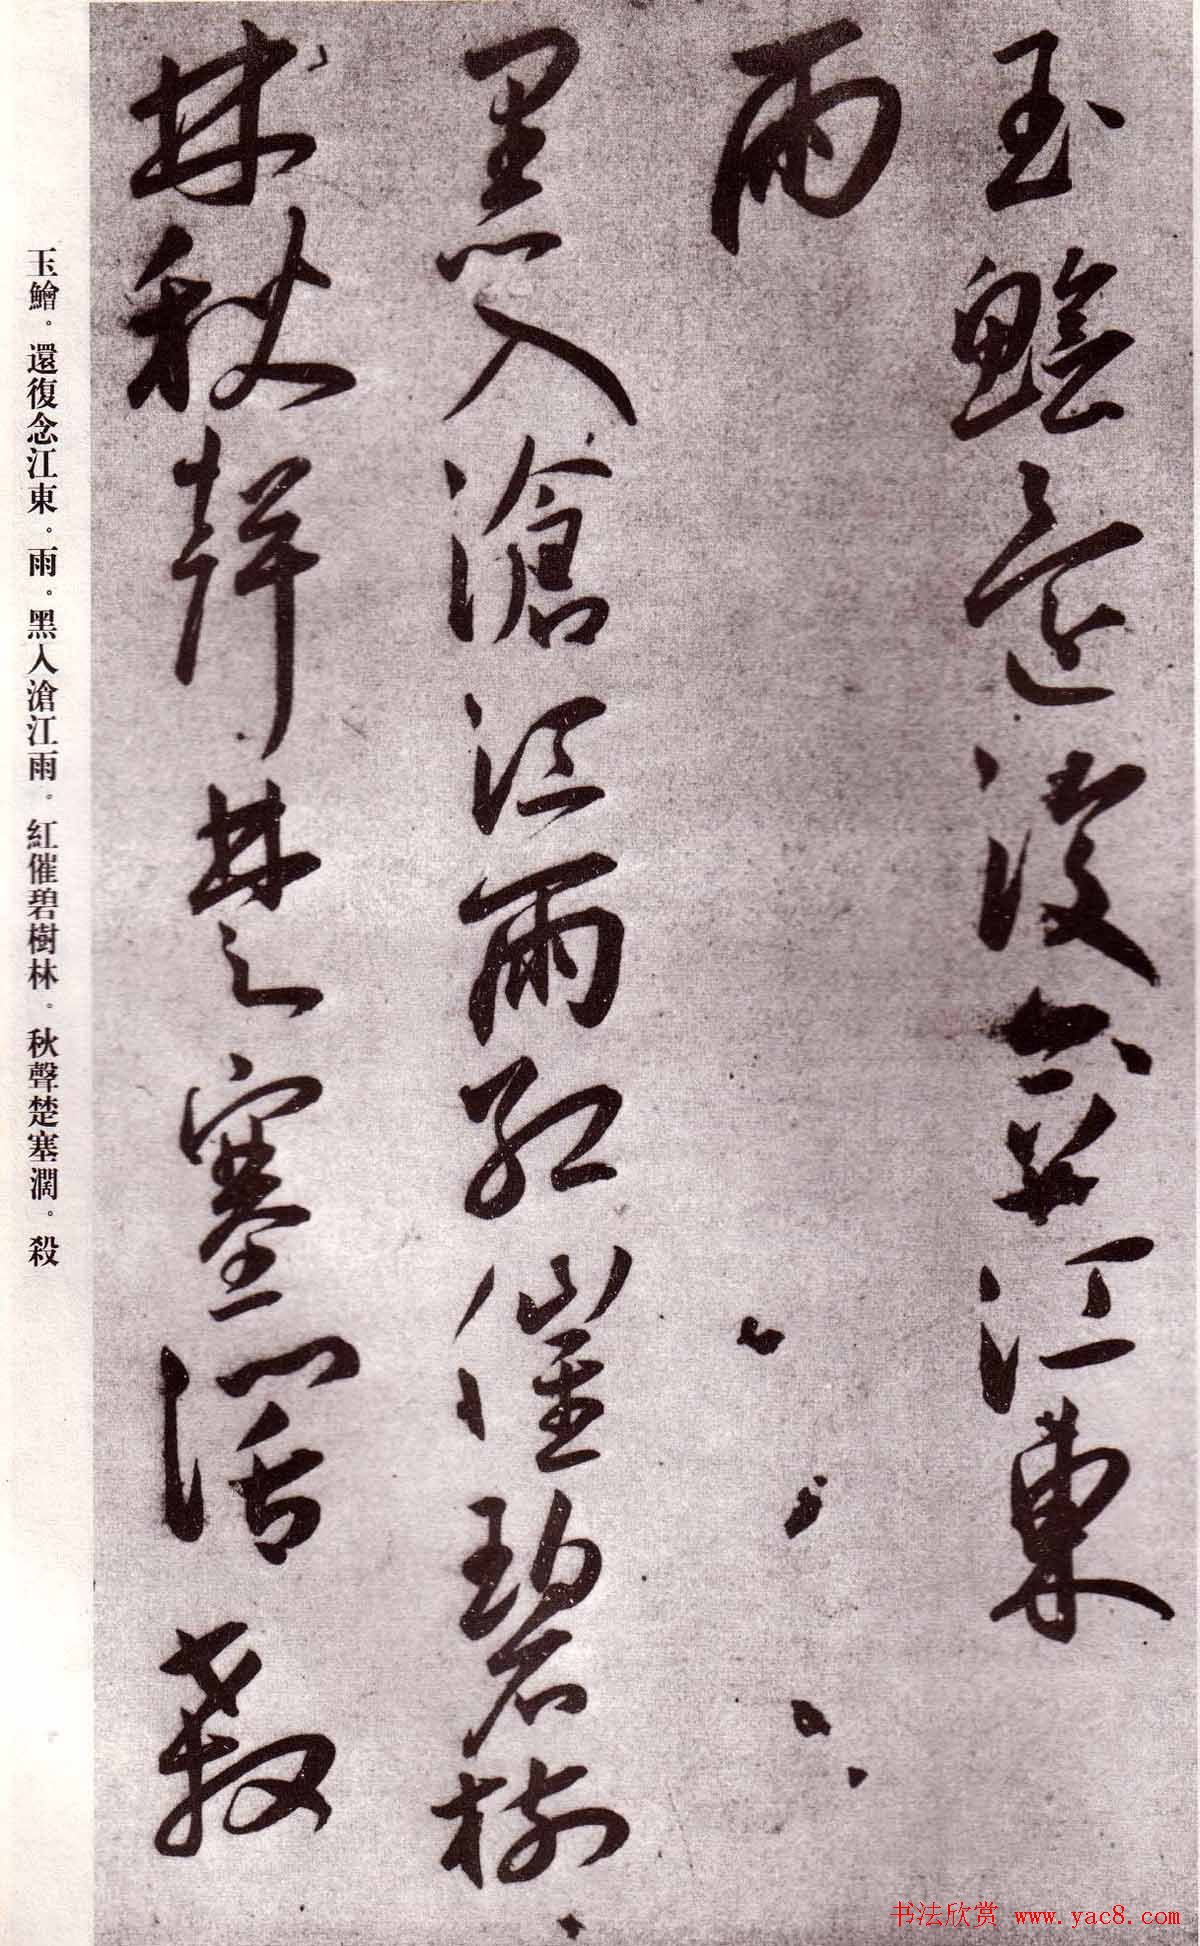 玉鱠還復念江東
雨
黑入滄江雨紅催碧樹
林秋聲楚塞濶殺
玉鱠。還復念江東。雨。黑入滄江雨。紅催碧樹林。秋聲楚塞濶。殺
书法欣赏 www.yac8.com